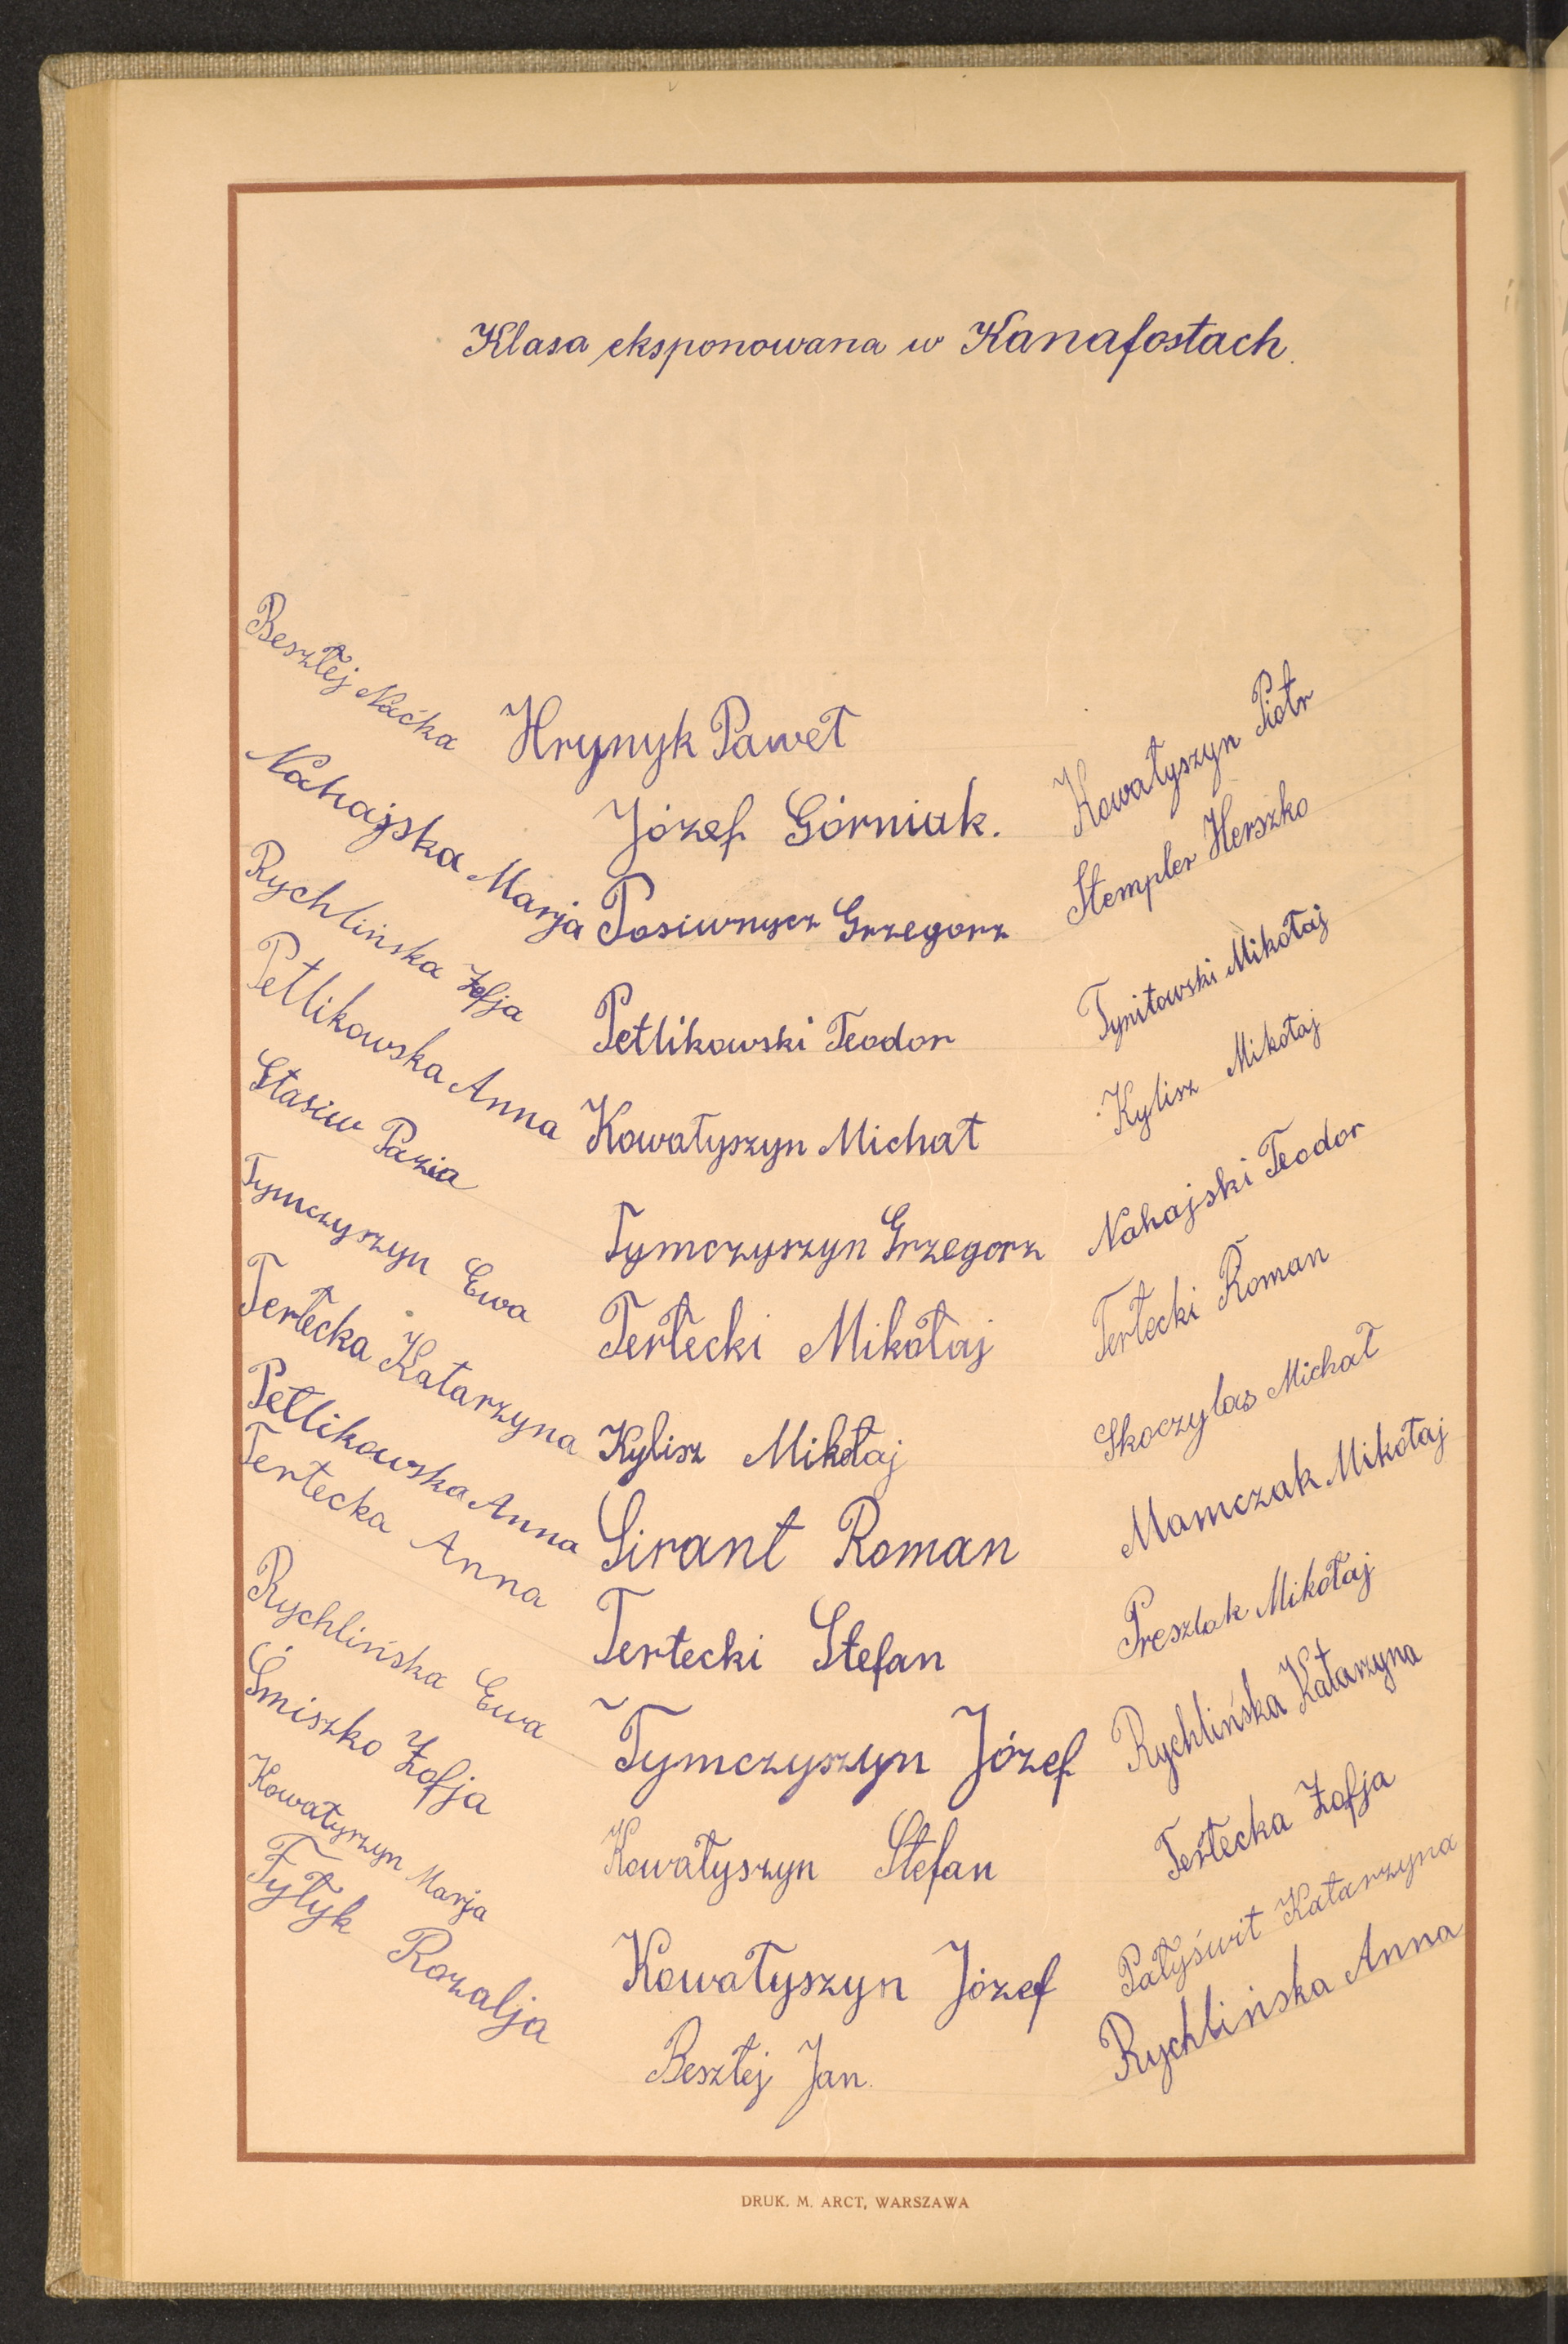 Klasa eksponowana w Kanafostach.
Besztej Naćka
Nahajska Marja
Rychlińska Zofja
Petlikowska Anna
Stasiw Pazia
Tymczyszyn Ewa
Terlecka Katarzyna
Petlikowska Anna
Terlecka Anna
Rychlińska Ewa
Śmiszko Zofja
Kowałyszyn Marja
Tytyk Rozalja
Hrynyk Paweł
Józef Górniak.
Posiwnycz Grzegorz
Petlikowski Teodor
Kowałyszyn Michał
Tymczyszyn Grzegorz
Terlecki Mikołaj
Kylisz Mikołaj
Sirant Roman
Terlecki Stefan
Tymczyszyn Józef
Kowałyszyn Stefan
Kowałyszyn Józef
Besztej Jan.
Kowałyszyn Piotr
Stempler Herszko
Tynitowski Mikołaj
Kylisz Mikołaj
Nahajski Teodor
Terlecki Roman
Skoczylas Michał
Mamczak Mikołaj
Preszlak Mikołaj
Rychlińska Katarzyna
Terlecka Zofja
Patyświt Katarzyna
Rychlińska Anna
DRUK. M. ARCT, WARSZAWA